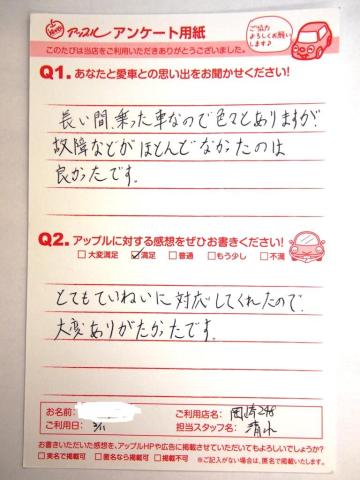 アップル アンケート用紙
ご協力
よろしくお願い
します♪
このたびは当店をご利用いただきありがとうございました。
Q1. あなたと愛車との思い出をお聞かせください!
長い間、乗った車なので色々とありますが、
故障などがほとんどなかったのは
良かったです。
Q2. アップルに対する感想をぜひお書きください!
□大変満足 ☑満足 □普通 □もう少し □不満
とてもていねいに対応してくれたので、
大変ありがたかったです。
お名前: ご利用店名: 岡崎248
ご利用日: 3/11 担当スタッフ名: 清水
お書きいただいた感想を、アップルHPや広告に掲載させていただいてもよろしいでしょうか?
□実名で掲載可 □匿名なら掲載可 □掲載不可 ※ご記入がない場合は、匿名で掲載いたします。